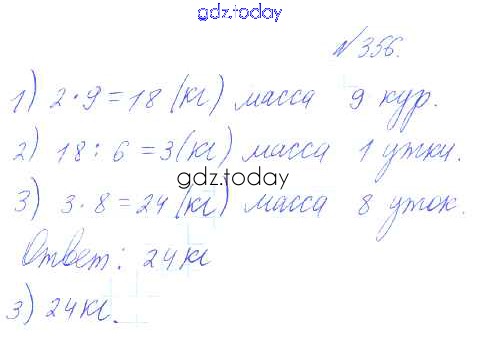 gdz.today
№356.
1) 2·9=18 (кг) масса 9 кур.
2) 18:6=3(кг) масса 1 утки.
gdz.today
3) 3·8=24 (кг) масса 8 уток.
Ответ: 24кг
3) 24кг.